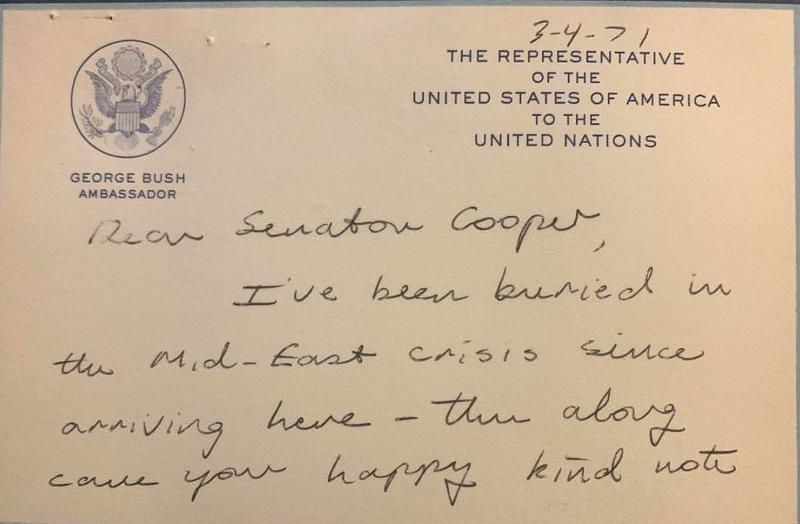 3-4-71
THE REPRESENTATIVE
OF THE
UNITED STATES OF AMERICA
TO THE
UNITED NATIONS
GEORGE BUSH
AMBASSADOR
Dear Senator Cooper,
I've been buried in
the Mid-East crisis since
arriving here - then along
came your happy kind note